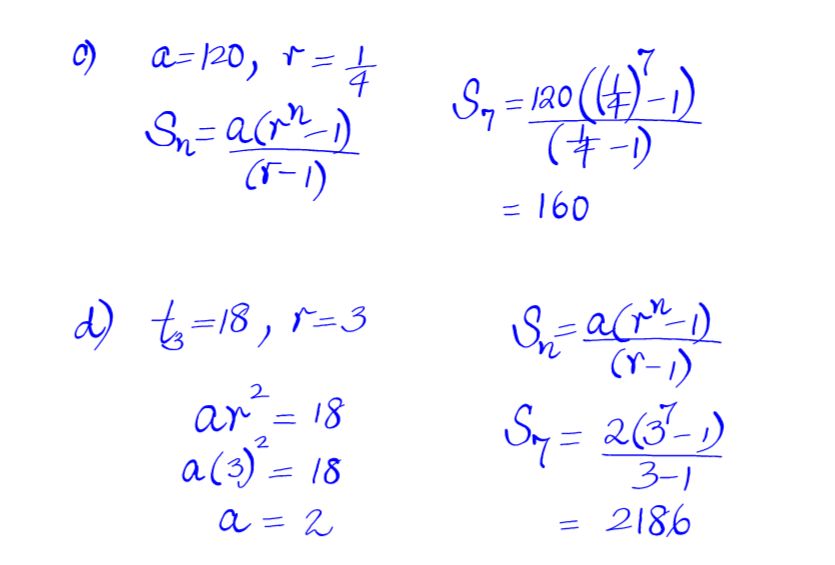 c) a=120, r = 1/4
Sn = a(r^n - 1)/(r - 1)
S7 = 120((1/4)^7 - 1)/(1/4 - 1)
= 160
d) t3 = 18, r = 3
ar^2 = 18
a(3)^2 = 18
a = 2
Sn = a(r^n - 1)/(r - 1)
S7 = 2(3^7 - 1)/3-1
= 2186